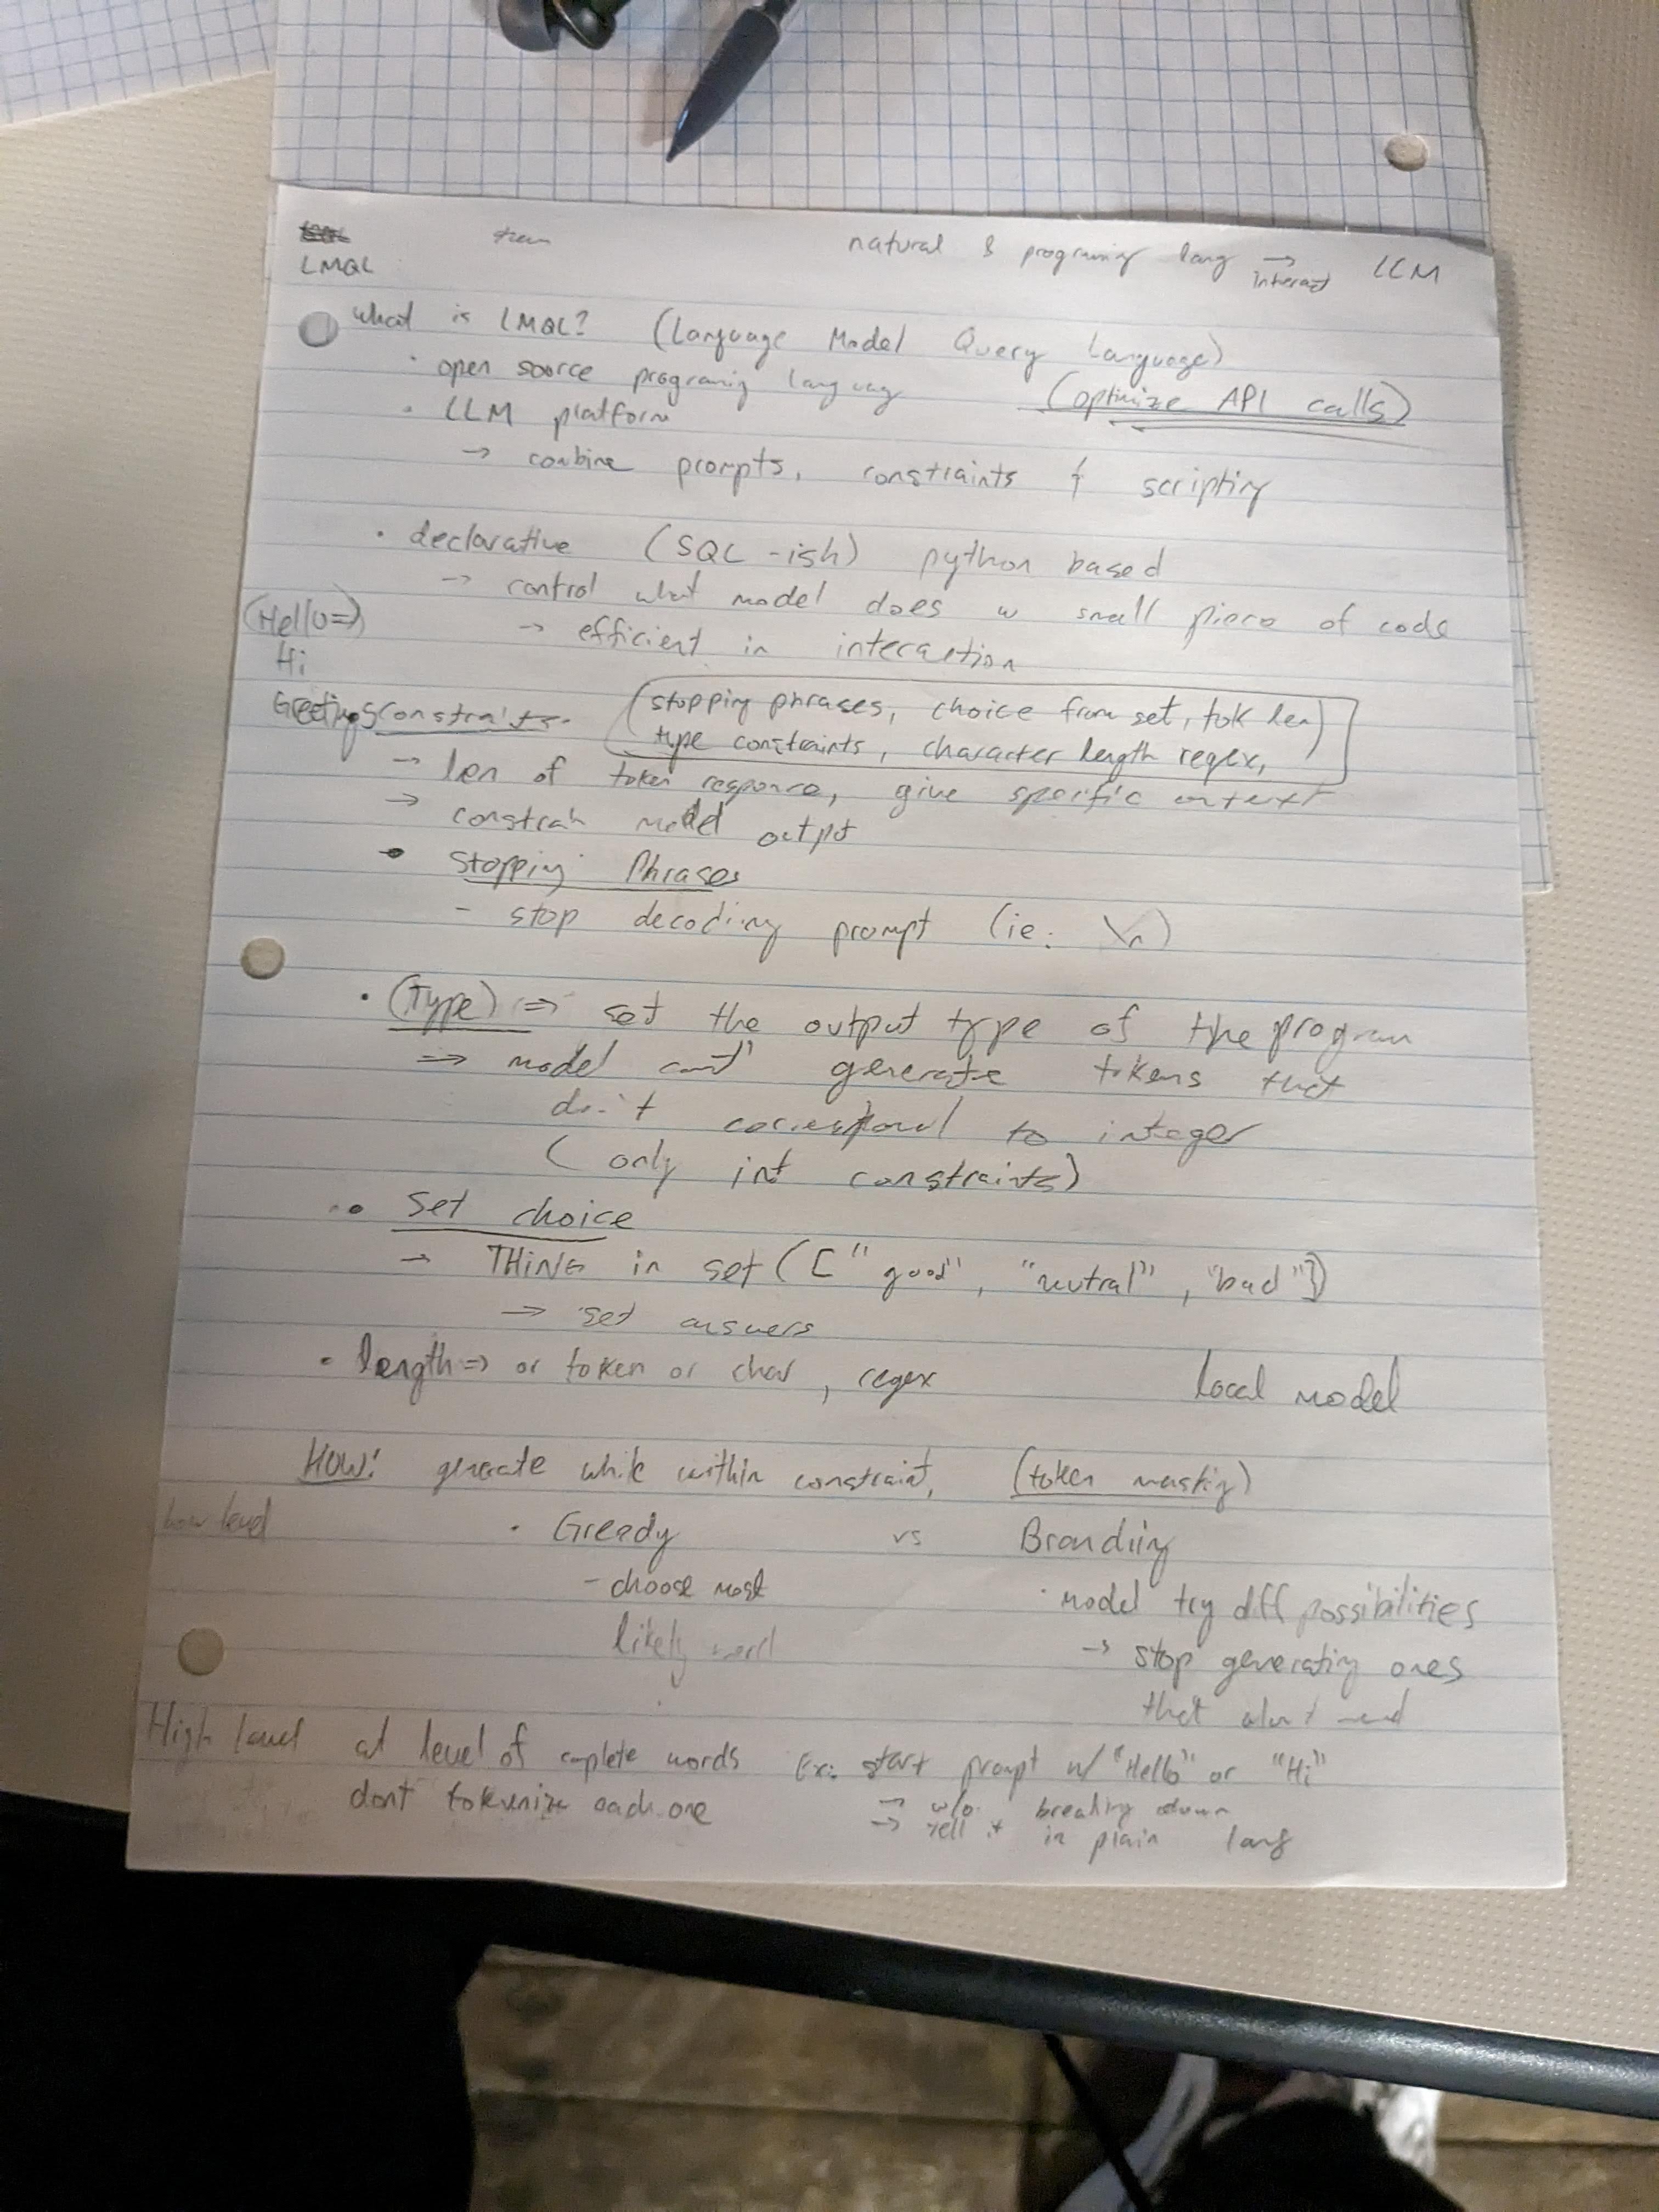 LMQL
natural & programing lang → interact LLM
what is LMQL? (Language Model Query Language)
· open source programing language (optimize API calls)
· LLM platform
→ combine prompts, constraints & scripting
· declarative (SQL-ish) python based
→ control what model does w small piece of code
(Hello=>) → efficient in interaction
Hi
Greetings constraints. (stopping phrases, choice from set, tok len)
type constraints, character length regex,
→ len of token response, give specific context
→ constrain model output
• Stopping Phrases
- stop decoding prompt (ie: \n)
· (Type) => set the output type of the program
=> model can't generate tokens that
don't correspond to integer
(only int constraints)
• Set choice
→ THING in set (["good", "neutral", "bad"])
→ set answers
· length => or token or char, regex local model
HOW: generate while within constraint, (token masking)
Low level · Gready vs Branding
- choose most · model try diff possibilities
likely word → stop generating ones
that
High level at level of complete words Ex: start prompt w/ "Hello" or "Hi"
dont tokenize each one → w/o breaking down
→ tell it in plain lang